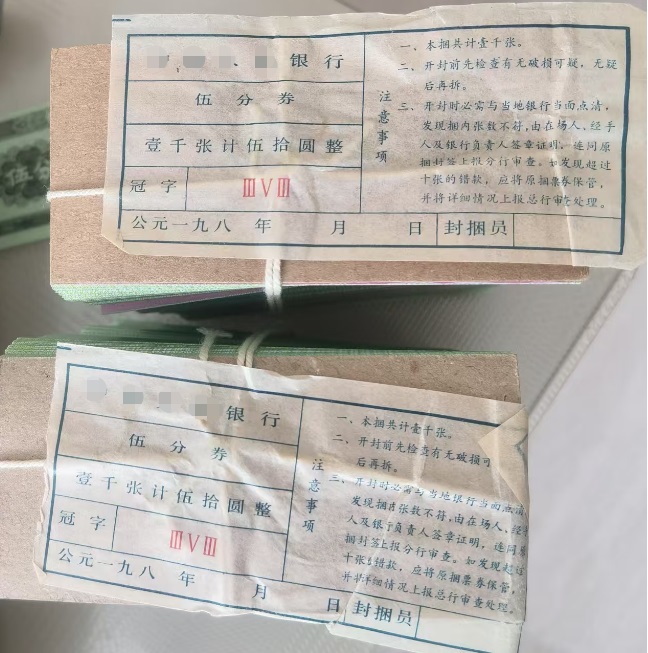 银行
伍分券
壹千张计伍拾圆整
冠字 ⅢⅤⅢ
公元一九八 年 月 日 封捆员
注意事项
一、本捆共计壹千张。
二、开封前先检查有无破损可疑，无疑
后再拆。
三、开封时必需与当地银行当面点清，
发现捆内张数不符，由在场人、经手
人及银行负责人签章证明，连同原
捆封签上报分行审查。如发现超过
十张的错款，应将原捆票券保管，
并将详细情况上报总行审查处理。
伍分
银行
伍分券
壹千张计伍拾圆整
冠字 ⅢⅤⅢ
公元一九八 年 月 日 封捆员
注意事项
一、本捆共计壹千张。
二、开封前先检查有无破损可
后再拆。
三、开封时必需与当地银行当面点清，
发现捆内张数不符，由在场人、经手
人及银行负责人签章证明，连同原
捆封签上报分行审查。如发现超过
十张的错款，应将原捆票券保管，
并将详细情况上报总行审查处理。